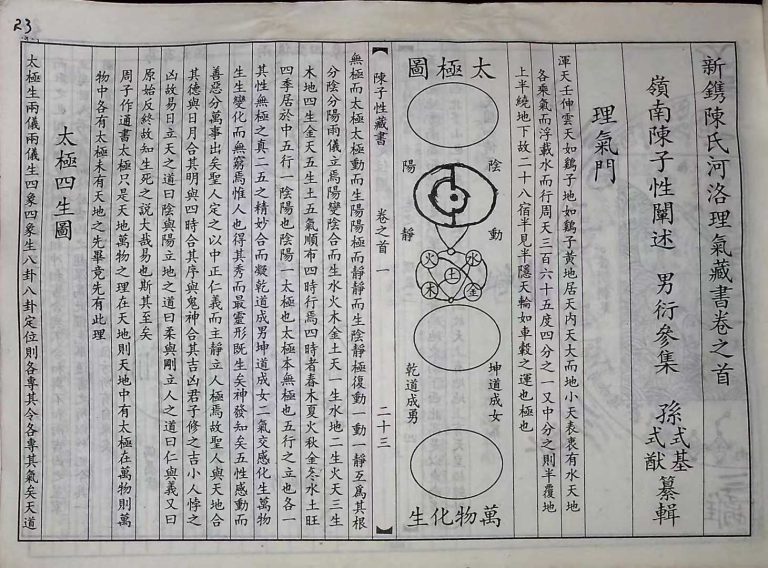 23
新鐫陳氏河洛理氣藏書卷之首
嶺南陳子性闡述 男衍參集 孫式基式猷纂輯
理氣門
渾天壬伸雲天如鷄子地如鷄子黃地居天内天大而地小天表衷有水天地
各乘氣而浮載水而行周天三百六十五度四分之一又中分之則半覆地
上半繞地下故二十八宿半見半隱天輪如車轂之運也極也
太極圖
陰動
陽靜
水
火
土
金
木
坤道成女
乾道成勇
萬物化生
陳子性藏書 卷之首 一 二十三
無極而太極太極動而生陽陽極而靜靜而生陰靜極復動一動一靜互爲其根
分陰分陽兩儀立焉陽變陰合而生水火木金土天一生水地二生火天三生
木地四生金天五生土五氣順布四時行焉四時者春木夏火秋金冬水土旺
四季居於中五行一陰陽也陰陽一太極也太極本無極也五行之立也各一
其性無極之真二五之精妙合而凝乾道成男坤道成女二氣交感化生萬物
生生變化而無窮焉惟人也得其秀而最靈形既生矣神發知矣五性感動而
善惡分萬事出矣聖人定之以中正仁義而主靜立人極焉故聖人與天地合
其德與日月合其明與四時合其序與鬼神合其吉凶君子修之吉小人悖之
凶故易曰立天之道曰陰與陽立地之道曰柔與剛立人之道曰仁與義又曰
原始反終故知生死之説大哉易也斯其至矣
周子作通書太極只是天地萬物之理在天地則天地中有太極在萬物則萬
物中各有太極未有天地之先畢竟先有此理
太極四生圖
太極生兩儀兩儀生四象四象生八卦八卦定位則各專其令各專其氣矣天道